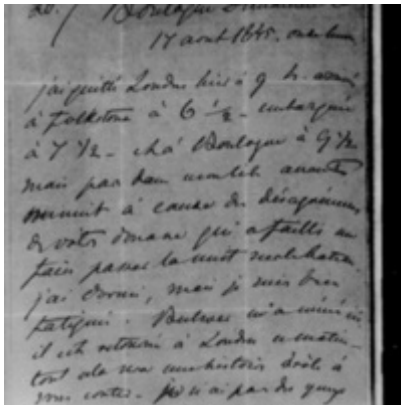 Boulogne
17 août 1845.
j'ai quitté Londres hier à 9 h. arrivé
à Folkstone à 6 1/2 - embarquée
à 7 1/2 - à Boulogne à 9 1/2
mais pas dans mon lit avant
minuit à cause des désagréments
de votre douane qui a failli me
faire passer la nuit
j'ai dormi, mais je suis bien
fatiguée. m'a
il est retourné à Londres ce matin -
tout cela une histoire drôle à
vous conter - je n'ai pas de